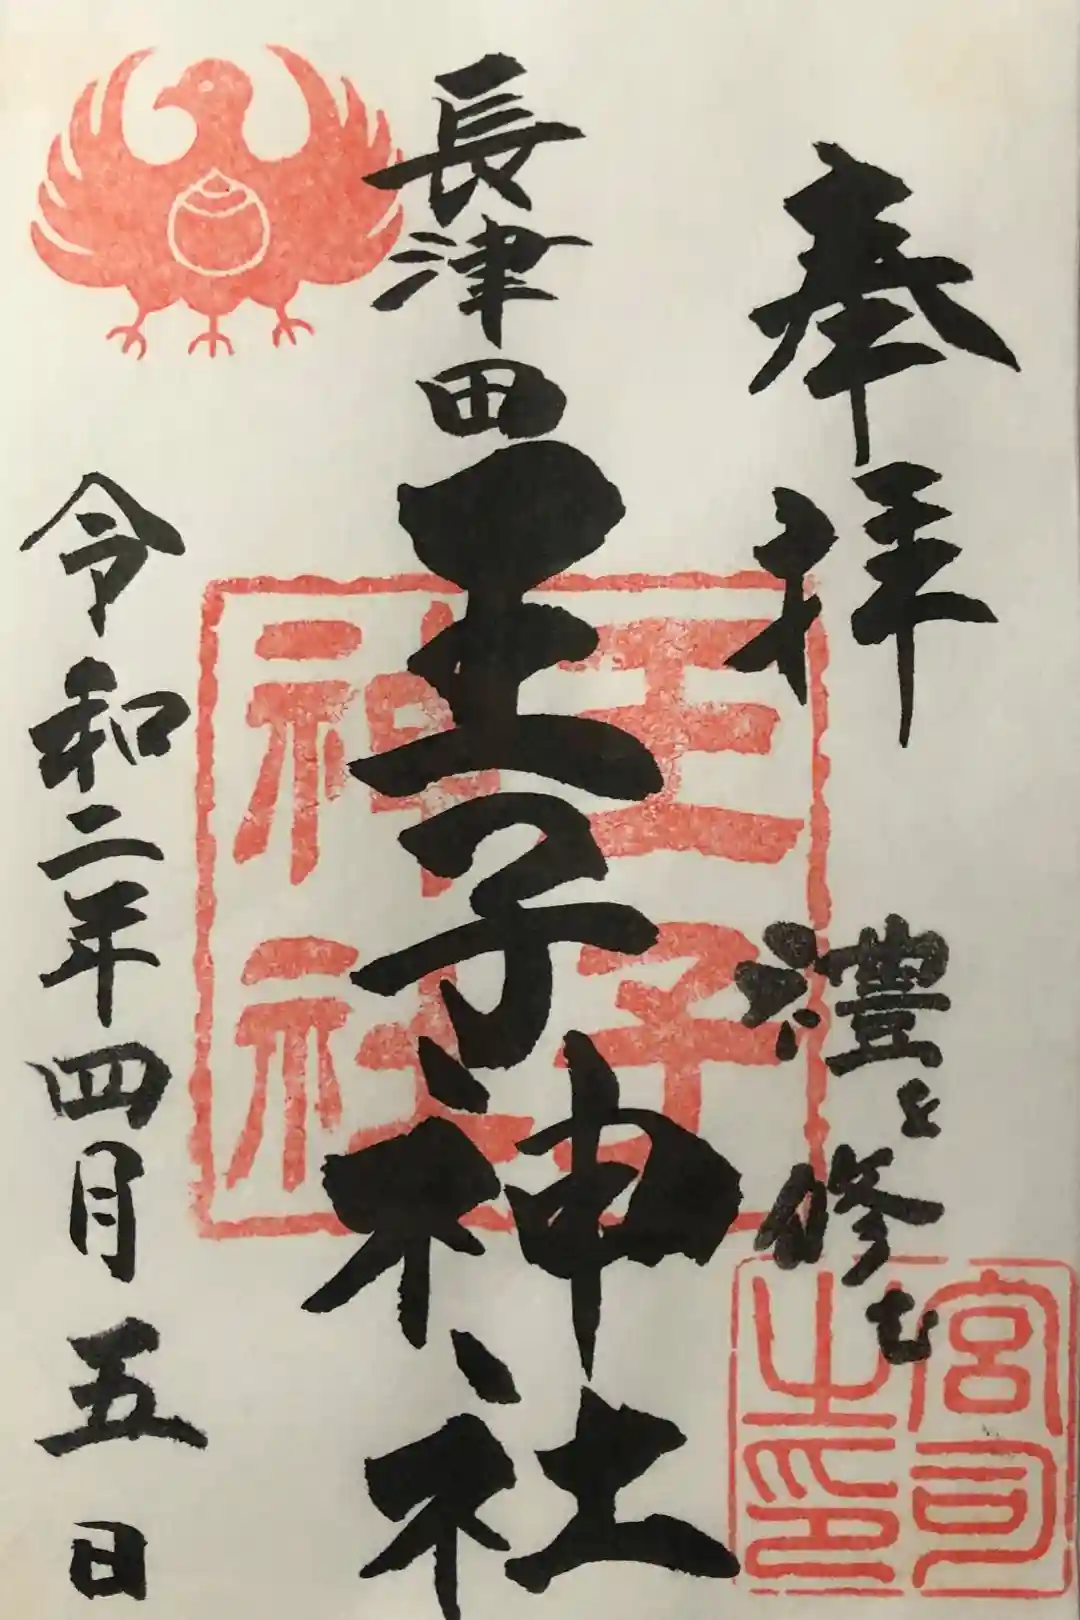 奉拝
澧を修む
長津田
王子神社
令和二年四月五日
王子
神社
宮司
之印